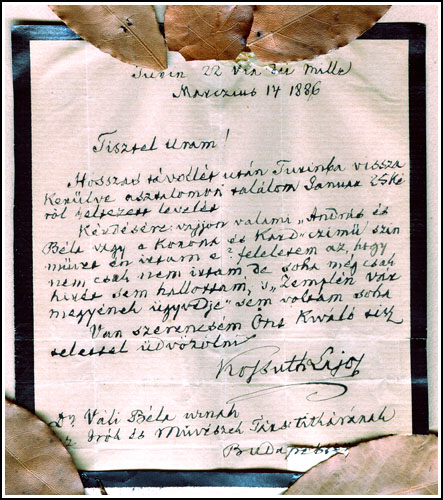 Turin 22 Via dei Mille
Marczius 17 1886
Tisztel Uram!
Hosszas távollét után Turinba vissza
kerülve asztalomon találom Januar 25ké
ről keltezett levelét
Kérdésére vajjon valami „András és
Béla vagy a Korona és Kard" czimű szin
művet én irtam e? feleletem az, hogy
nem csak nem irtam, de soha még csak
hirét sem hallottam, s „Zemplén vár
megyének ügyvdje" sem voltam soha
Van szerencsém Önt kiváló tisz
telettel üdvözölni
Kossuth Lajos
Dr Váli Béla urnak
az Irók és Művészek Társ titkárának
Budapest